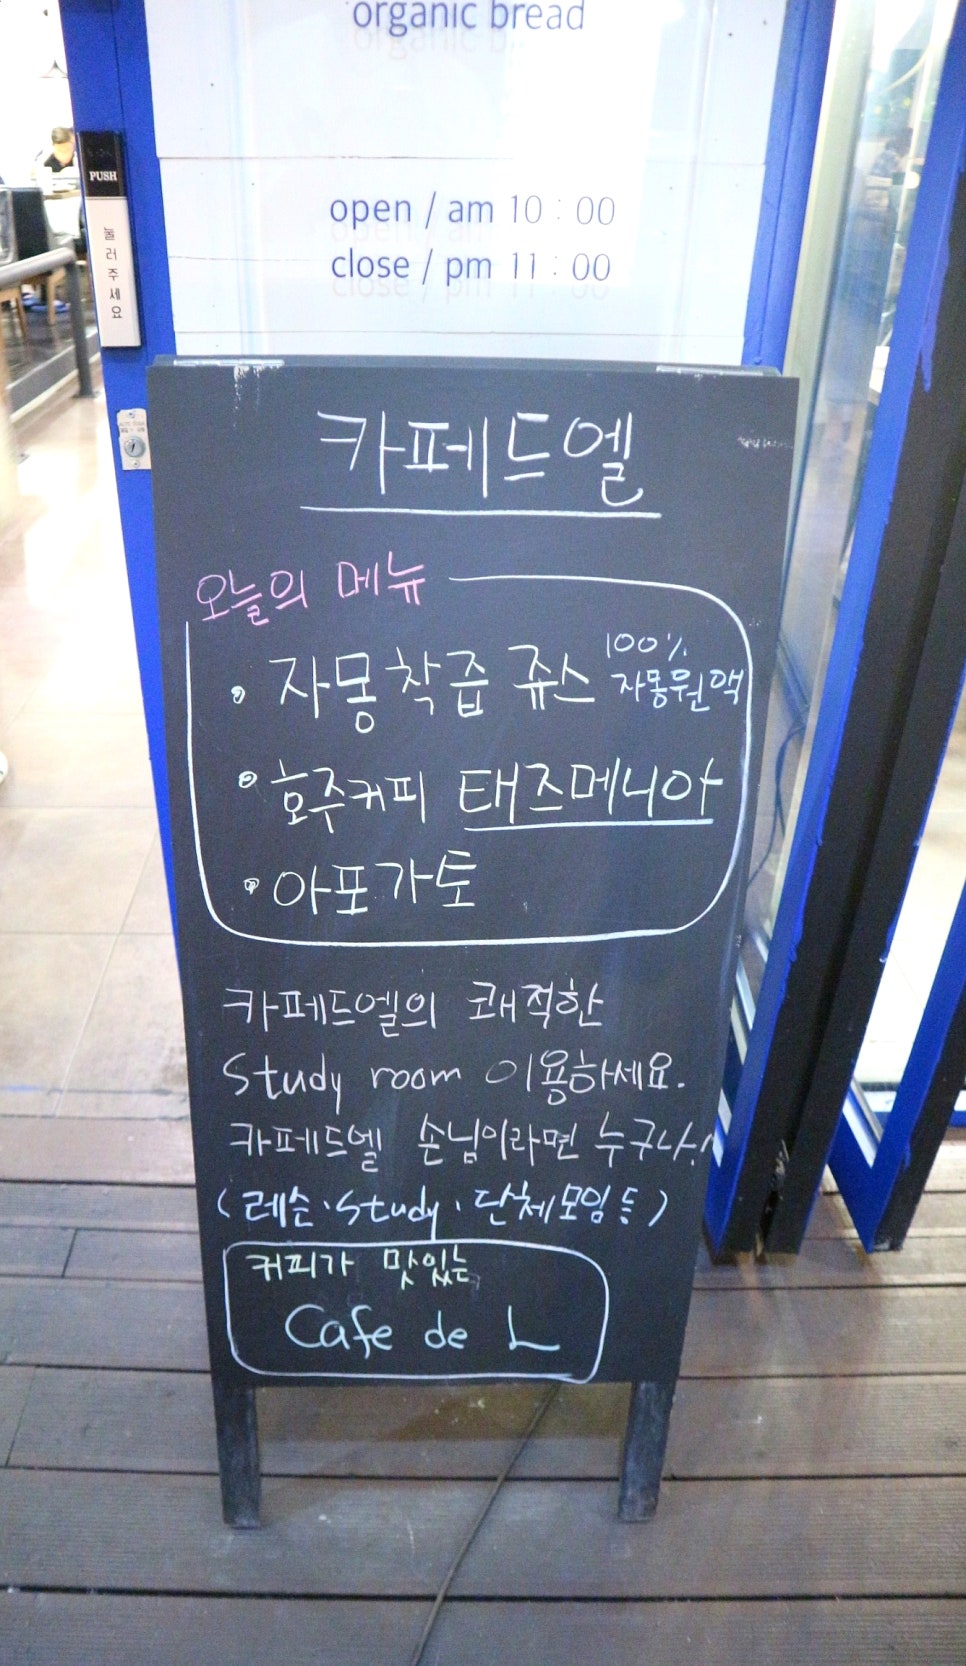 organic bread
open / am 10 : 00
close / pm 11 : 00
PUSH
눌러주세요
카페드엘
오늘의 메뉴
• 자몽착즙 쥬스 100% 자몽원액
• 호주커피 태즈메니아
• 아포가토
카페드엘의 쾌적한
Study room 이용하세요.
카페드엘 손님이라면 누구나!
(레슨·Study·단체모임 등)
커피가 맛있는
Cafe de L